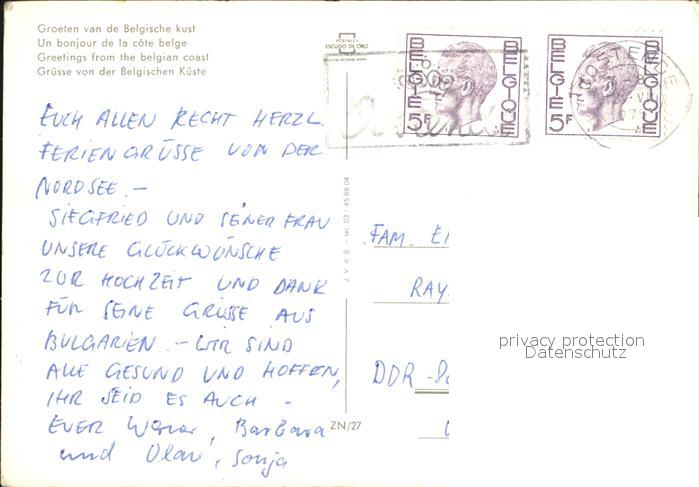 Groeten van de Belgische kust
Un bonjour de la côte belge
Greetings from the belgian coast
Grüsse von der Belgischen Küste
POSTALES
ESCUDO DE ORO
BELGIE
BELGIQUE
5F
BELGIE
BELGIQUE
5F
EUCH ALLEN RECHT HERZL.
FERIENGRÜSSE VON DER
NORDSEE. –
SIEGFRIED UND SEINER FRAU
UNSERE GLÜCKWÜNSCHE
ZUR HOCHZEIT UND DANK
FÜR SEINE GRÜSSE AUS
BULGARIEN. – WIR SIND
ALLE GESUND UND HOFFEN,
IHR SEID ES AUCH –
EUER Werner, Barbara
und Olav, Sonja
J. V. d. B. – tel. 03 - 45 68 04
ZN/27
FAM. E
RAY
DDR –
privacy protection
Datenschutz